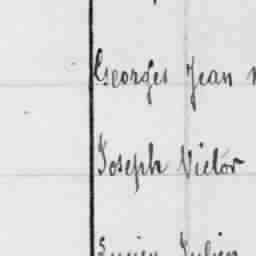 Georges Jean
Joseph Victor
Lucien Julien